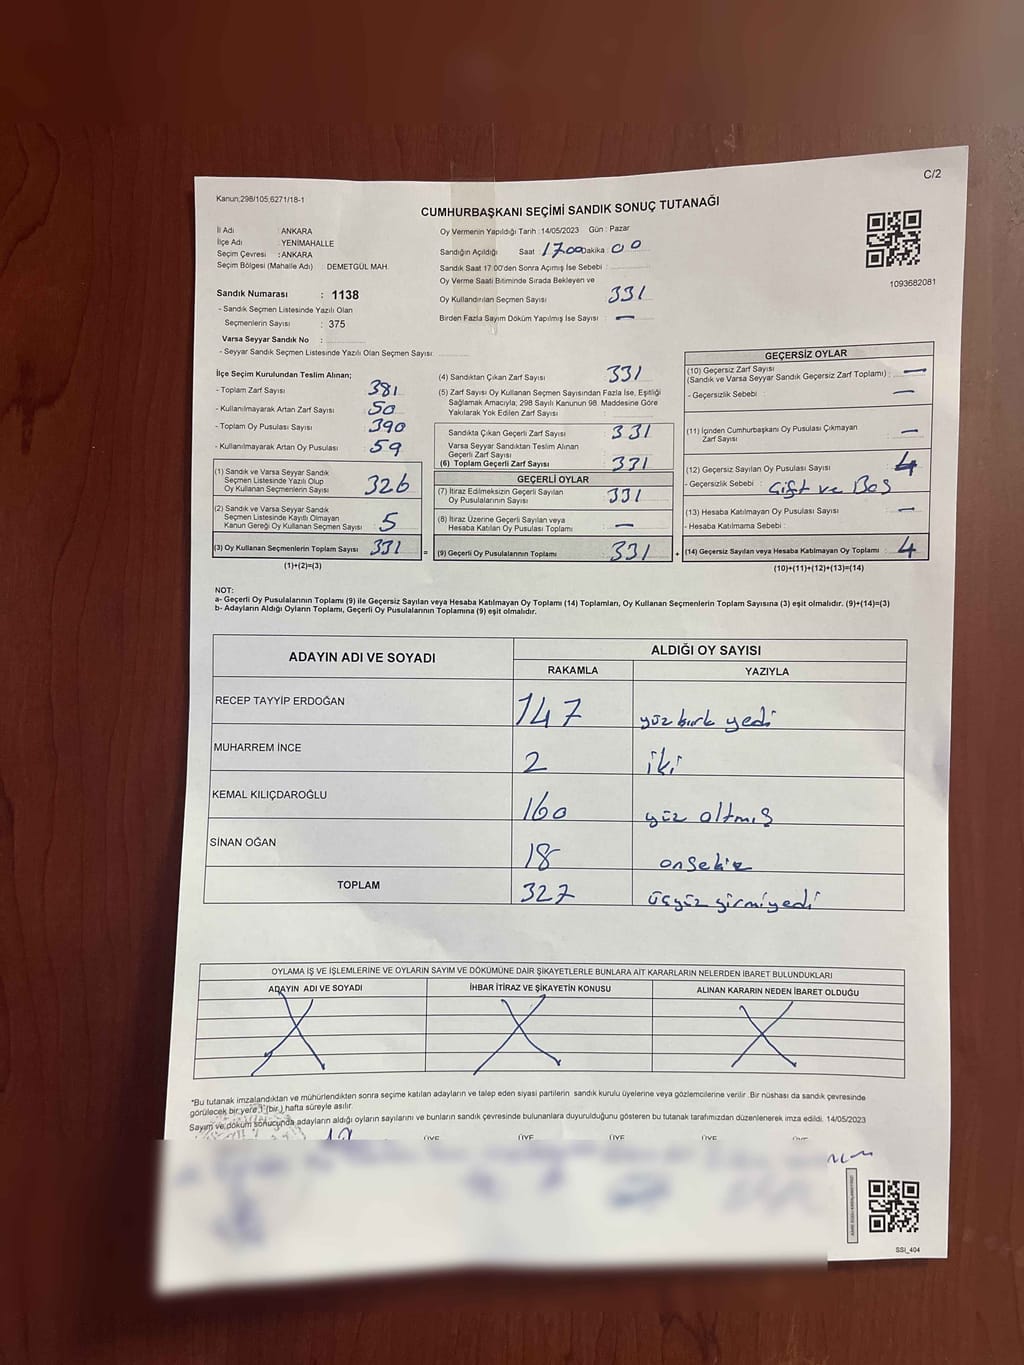 C/2
Kanun;298/105,6271/18-1
CUMHURBAŞKANI SEÇİMİ SANDIK SONUÇ TUTANAĞI
İl Adı : ANKARA
İlçe Adı : YENİMAHALLE
Seçim Çevresi : ANKARA
Seçim Bölgesi (Mahalle Adı) : DEMETGÜL MAH.
Sandık Numarası : 1138
- Sandık Seçmen Listesinde Yazılı Olan
Seçmenlerin Sayısı : 375
Varsa Seyyar Sandık No :
- Seyyar Sandık Seçmen Listesinde Yazılı Olan Seçmen Sayısı:
Oy Vermenin Yapıldığı Tarih :14/05/2023 Gün : Pazar
Sandığın Açıldığı Saat 1700 Dakika : 00
Sandık Saat 17:00'den Sonra Açımış İse Sebebi :
Oy Verme Saati Bitiminde Sırada Bekleyen ve
Oy Kullandırılan Seçmen Sayısı 331
Birden Fazla Sayım Döküm Yapılmış İse Sayısı : —
1093682081
İlçe Seçim Kurulundan Teslim Alınan;
- Toplam Zarf Sayısı 381
- Kullanılmayarak Artan Zarf Sayısı 50
- Toplam Oy Pusulası Sayısı 390
- Kullanılmayarak Artan Oy Pusulası 59
(1) Sandık ve Varsa Seyyar Sandık
Seçmen Listesinde Yazılı Olup
Oy Kullanan Seçmenlerin Sayısı 326
(2) Sandık ve Varsa Seyyar Sandık
Seçmen Listesinde Kayıtlı Olmayan
Kanun Gereği Oy Kullanan Seçmen Sayısı 5
(3) Oy Kullanan Seçmenlerin Toplam Sayısı 331
(1)+(2)=(3)
=
(4) Sandıktan Çıkan Zarf Sayısı 331
(5) Zarf Sayısı Oy Kullanan Seçmen Sayısından Fazla İse, Eşitliği
Sağlamak Amacıyla; 298 Sayılı Kanunun 98. Maddesine Göre
Yakılarak Yok Edilen Zarf Sayısı :
Sandıkta Çıkan Geçerli Zarf Sayısı : 331
Varsa Seyyar Sandıktan Teslim Alınan
Geçerli Zarf Sayısı :
(6) Toplam Geçerli Zarf Sayısı : 331
GEÇERLİ OYLAR
(7) İtiraz Edilmeksizin Geçerli Sayılan
Oy Pusulalarının Sayısı : 331
(8) İtiraz Üzerine Geçerli Sayılan veya
Hesaba Katılan Oy Pusulası Toplamı : —
(9) Geçerli Oy Pusulalarının Toplamı : 331
+
GEÇERSİZ OYLAR
(10) Geçersiz Zarf Sayısı
(Sandık ve Varsa Seyyar Sandık Geçersiz Zarf Toplamı) : —
- Geçersizlik Sebebi : —
(11) İçinden Cumhurbaşkanı Oy Pusulası Çıkmayan
Zarf Sayısı : —
(12) Geçersiz Sayılan Oy Pusulası Sayısı : 4
- Geçersizlik Sebebi : Çift ve Boş
(13) Hesaba Katılmayan Oy Pusulası Sayısı : —
- Hesaba Katılmama Sebebi :
(14) Geçersiz Sayılan veya Hesaba Katılmayan Oy Toplamı : 4
(10)+(11)+(12)+(13)=(14)
NOT:
a- Geçerli Oy Pusulalarının Toplamı (9) ile Geçersiz Sayılan veya Hesaba Katılmayan Oy Toplamı (14) Toplamları, Oy Kullanan Seçmenlerin Toplam Sayısına (3) eşit olmalıdır. (9)+(14)=(3)
b- Adayların Aldığı Oyların Toplamı, Geçerli Oy Pusulalarının Toplamına (9) eşit olmalıdır.
ADAYIN ADI VE SOYADI
ALDIĞI OY SAYISI
RAKAMLA YAZIYLA
RECEP TAYYİP ERDOĞAN 147 yüz kırk yedi
MUHARREM İNCE 2 iki
KEMAL KILIÇDAROĞLU 160 yüz altmış
SİNAN OĞAN 18 onsekiz
TOPLAM 327 üçyüz yirmiyedi
OYLAMA İŞ VE İŞLEMLERİNE VE OYLARIN SAYIM VE DÖKÜMÜNE DAİR ŞİKAYETLERLE BUNLARA AİT KARARLARIN NELERDEN İBARET BULUNDUKLARI
ADAYIN ADI VE SOYADI İHBAR İTİRAZ VE ŞİKAYETİN KONUSU ALINAN KARARIN NEDEN İBARET OLDUĞU
*Bu tutanak imzalandıktan ve mühürlendikten sonra seçime katılan adayların ve talep eden siyasi partilerin sandık kurulu üyelerine veya gözlemcilerine verilir. Bir nüshası da sandık çevresinde
görülecek bir yere 1 (bir) hafta süreyle asılır.
Sayım ve döküm sonucunda adayların aldığı oyların sayılarını ve bunların sandık çevresinde bulunanlara duyurulduğunu gösteren bu tutanak tarafımızdan düzenlenerek imza edildi. 14/05/2023
ÜYE ÜYE ÜYE ÜYE ÜYE
SSI_404